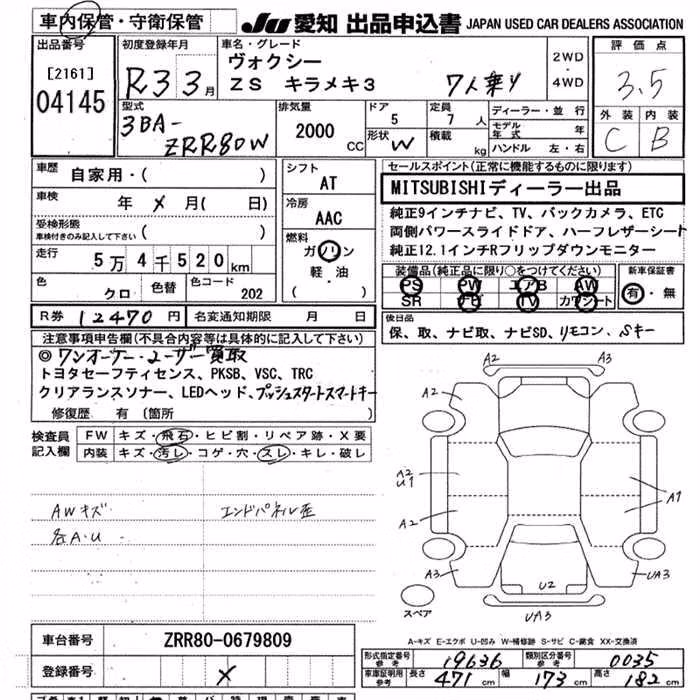 車内保管・守衛保管
JU 愛知 出品申込書 JAPAN USED CAR DEALERS ASSOCIATION
出品番号
[2161]
04145
初度登録年月
R3 3月
車名・グレード
ヴォクシー
ZS キラメキ3 7人乗り
2WD
・
4WD
評価点
3.5
外装 内装
C B
型式
3BA-
ZRR80W
排気量
2000
CC
ドア
5
定員
7 人
形状
W
積載
kg
ディーラー・並行
モデル年式 年
ハンドル 左・右
車歴
自家用・( )
車検
年 メ 月( 日)
受検形態
車検付きのみ記入して下さい ( )
走行
5万4千520km
色
クロ
色替
色コード
202
シフト
AT
冷房
AAC
燃料
ガソリン
軽・油
( )
セールスポイント(正常に機能するものに限ります)
MITSUBISHIディーラー出品
純正9インチナビ、TV、バックカメラ、ETC
両側パワースライドドア、ハーフレザーシート
純正12.1インチRフリップダウンモニター
装備品(純正品に限り○をつけてください)
PS PW エアB AW
SR ナビ TV カワシート
新車保証書
有・無
R券 12470円 名変通知期限 月 日
後日品
保、取、ナビ取、ナビSD、リモコン、Sキー
注意事項申告欄(不具合内容等は具体的に記入して下さい)
◎ワンオーナー・ユーザー買取
トヨタセーフティセンス、PKSB、VSC、TRC
クリアランスソナー、LEDヘッド、プッシュスタートスマートキー
修復歴 有(箇所 )
検査員
記入欄
FW キズ・飛石・ヒビ割・リペア跡・X要
内装 キズ・汚レ・コゲ・穴・スレ・キレ・破レ
AWキズ エンドパネル歪
各A・U
A2 A3
A2
A2
U1
A1
A2
A3 U2 UA3
スペア
UA3
A-キズ E-エクボ U-凹み W-補修跡 S-サビ C-腐食 XX-交換済
車台番号 ZRR80-0679809
登録番号 メ
形式指定番号
参考
19636
類別区分番号
参考
0035
車庫証明用
参考
長さ 471cm 幅 173cm 高さ 182cm